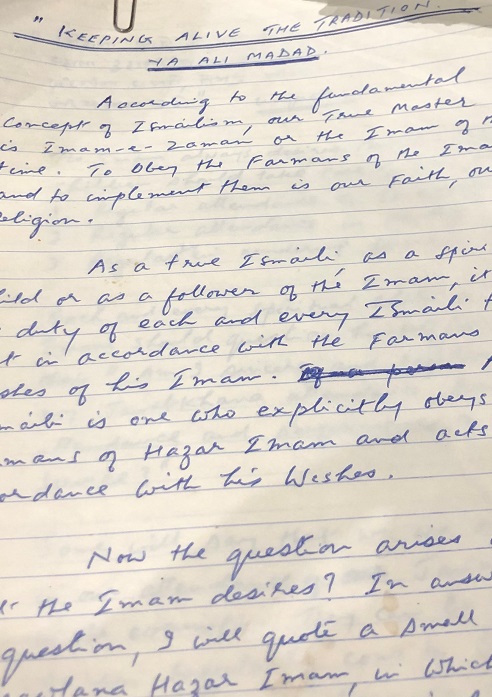 " KEEPING ALIVE THE TRADITION.
YA ALI MADAD.
According to the fundamental
Concept of Ismailism, our True Master
is Imam-e-Zaman or the Imam of
time. To Obey the Farmans of the
and to implement them is our Faith,
eligion.
As a true Ismáili as a
or as a follower of the Imam, it
duty of each and every Ismáili
in accordance with the Farmans
shes of his Imam. If a person
máili is one who explicitly obeys
mans of Hazar Imam and acts
ordance with his Wishes.
Now the question arises
the Imam desires? In answ
question, I will quote a small
awlana Hazar Imam, in which